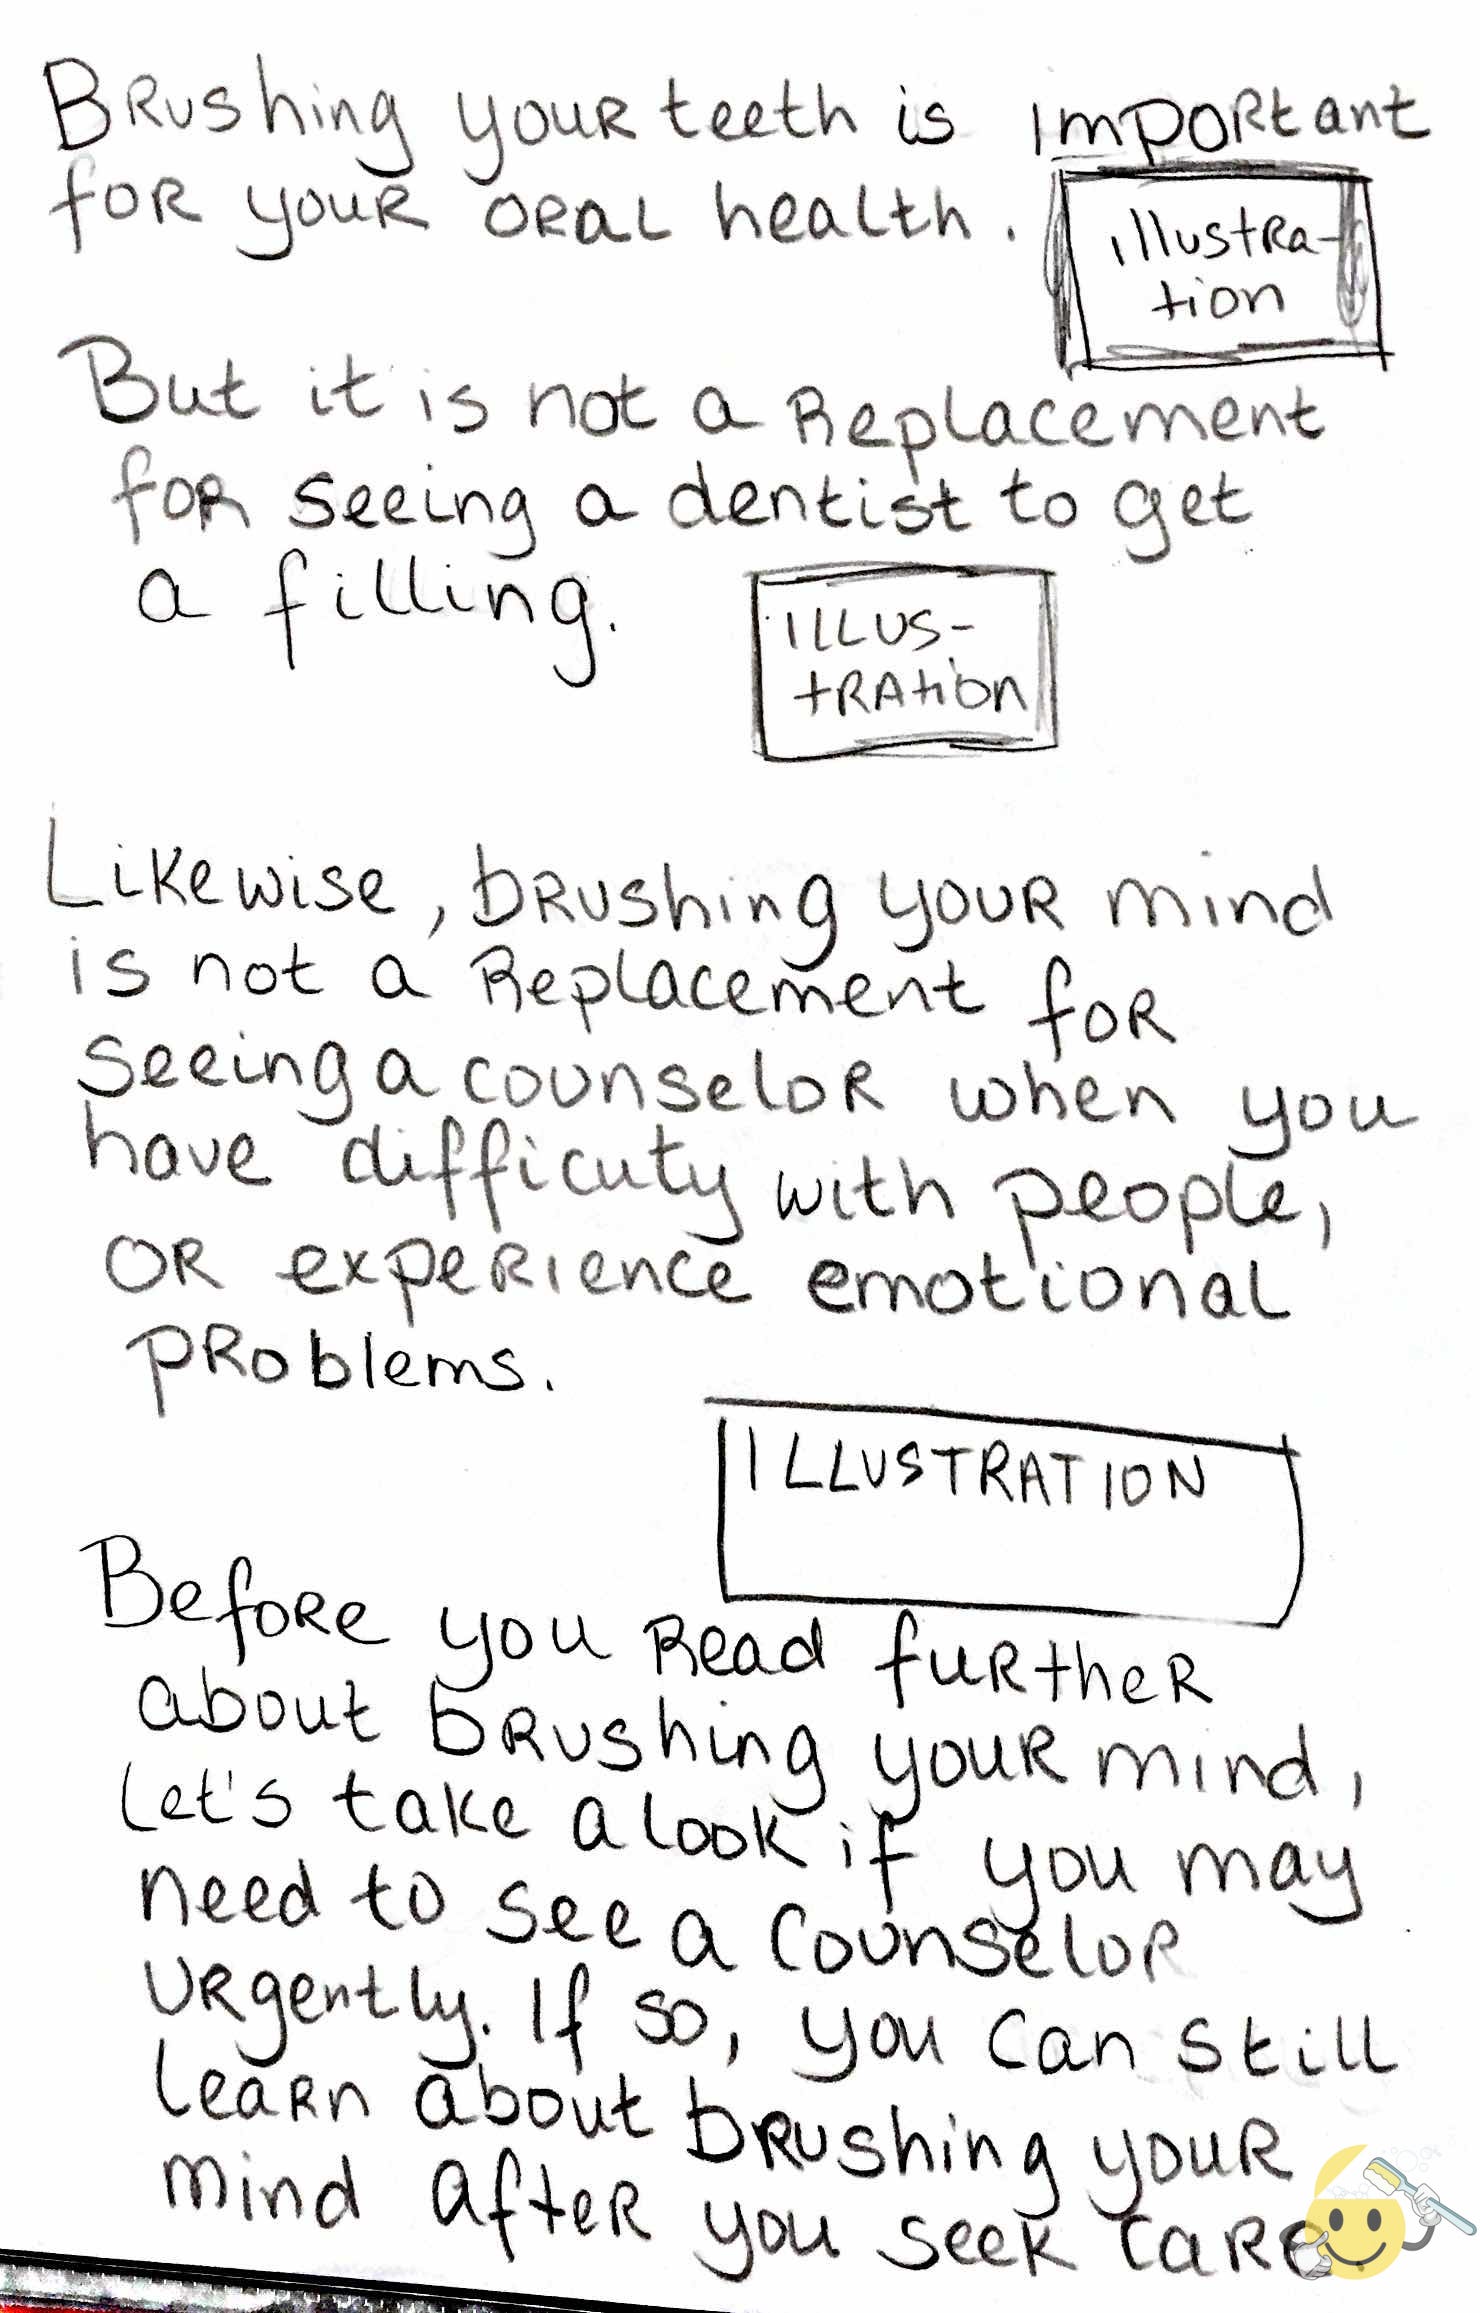 Brushing your teeth is important
for your oral health.
illustra-
tion
But it is not a Replacement
for seeing a dentist to get
a filling.
ILLUS-
tRAtion
Likewise, brushing your mind
is not a Replacement for
seeing a counselor when you
have difficuty with people,
or experience emotional
problems.
ILLUSTRATION
Before you Read further
about brushing your mind,
let's take a look if you may
need to see a counselor
urgently. If so, you can still
learn about brushing your
mind after you seek care